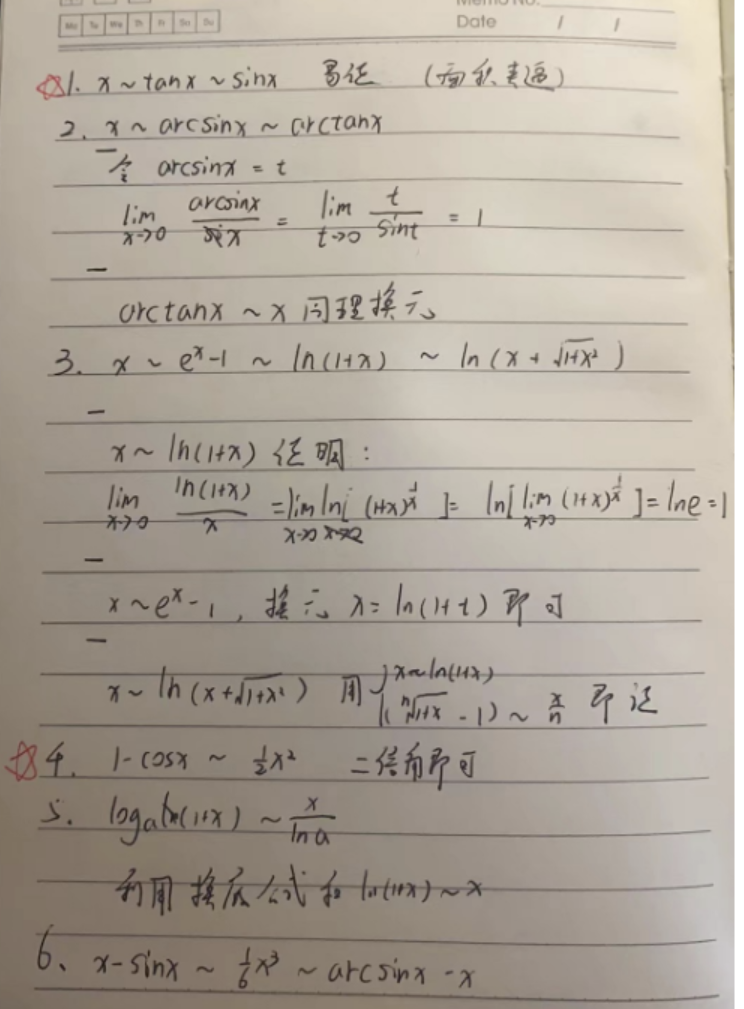 Memo No.
Mo Tu We Th Fr Sa Su
Date / /
☆1. x ~ tanx ~ sinx 易证 (面积夹逼)
2. x ~ arcsinx ~ arctanx
令 arcsinx = t
lim x→0 arcsinx / x = lim t→0 t / sint = 1
arctanx ~ x 同理换元
3. x ~ e^x-1 ~ ln(1+x) ~ ln(x + √(1+x²))
x ~ ln(1+x) 证明:
lim x→0 ln(1+x) / x = lim x→0 ln[(1+x)^(1/x)] = ln[lim x→0 (1+x)^(1/x)] = lne = 1
x ~ e^x - 1, 换元 x = ln(1+t) 即可
x ~ ln(x+√(1+x²)) 用 { x ~ ln(1+x)
(ⁿ√(1+x) - 1) ~ x/n 即证
☆4. 1-cosx ~ ½x² 二倍角即可
5. logₐ(1+x) ~ x / lna
利用换底公式和 ln(1+x) ~ x
6、 x-sinx ~ 1/6 x³ ~ arcsinx - x